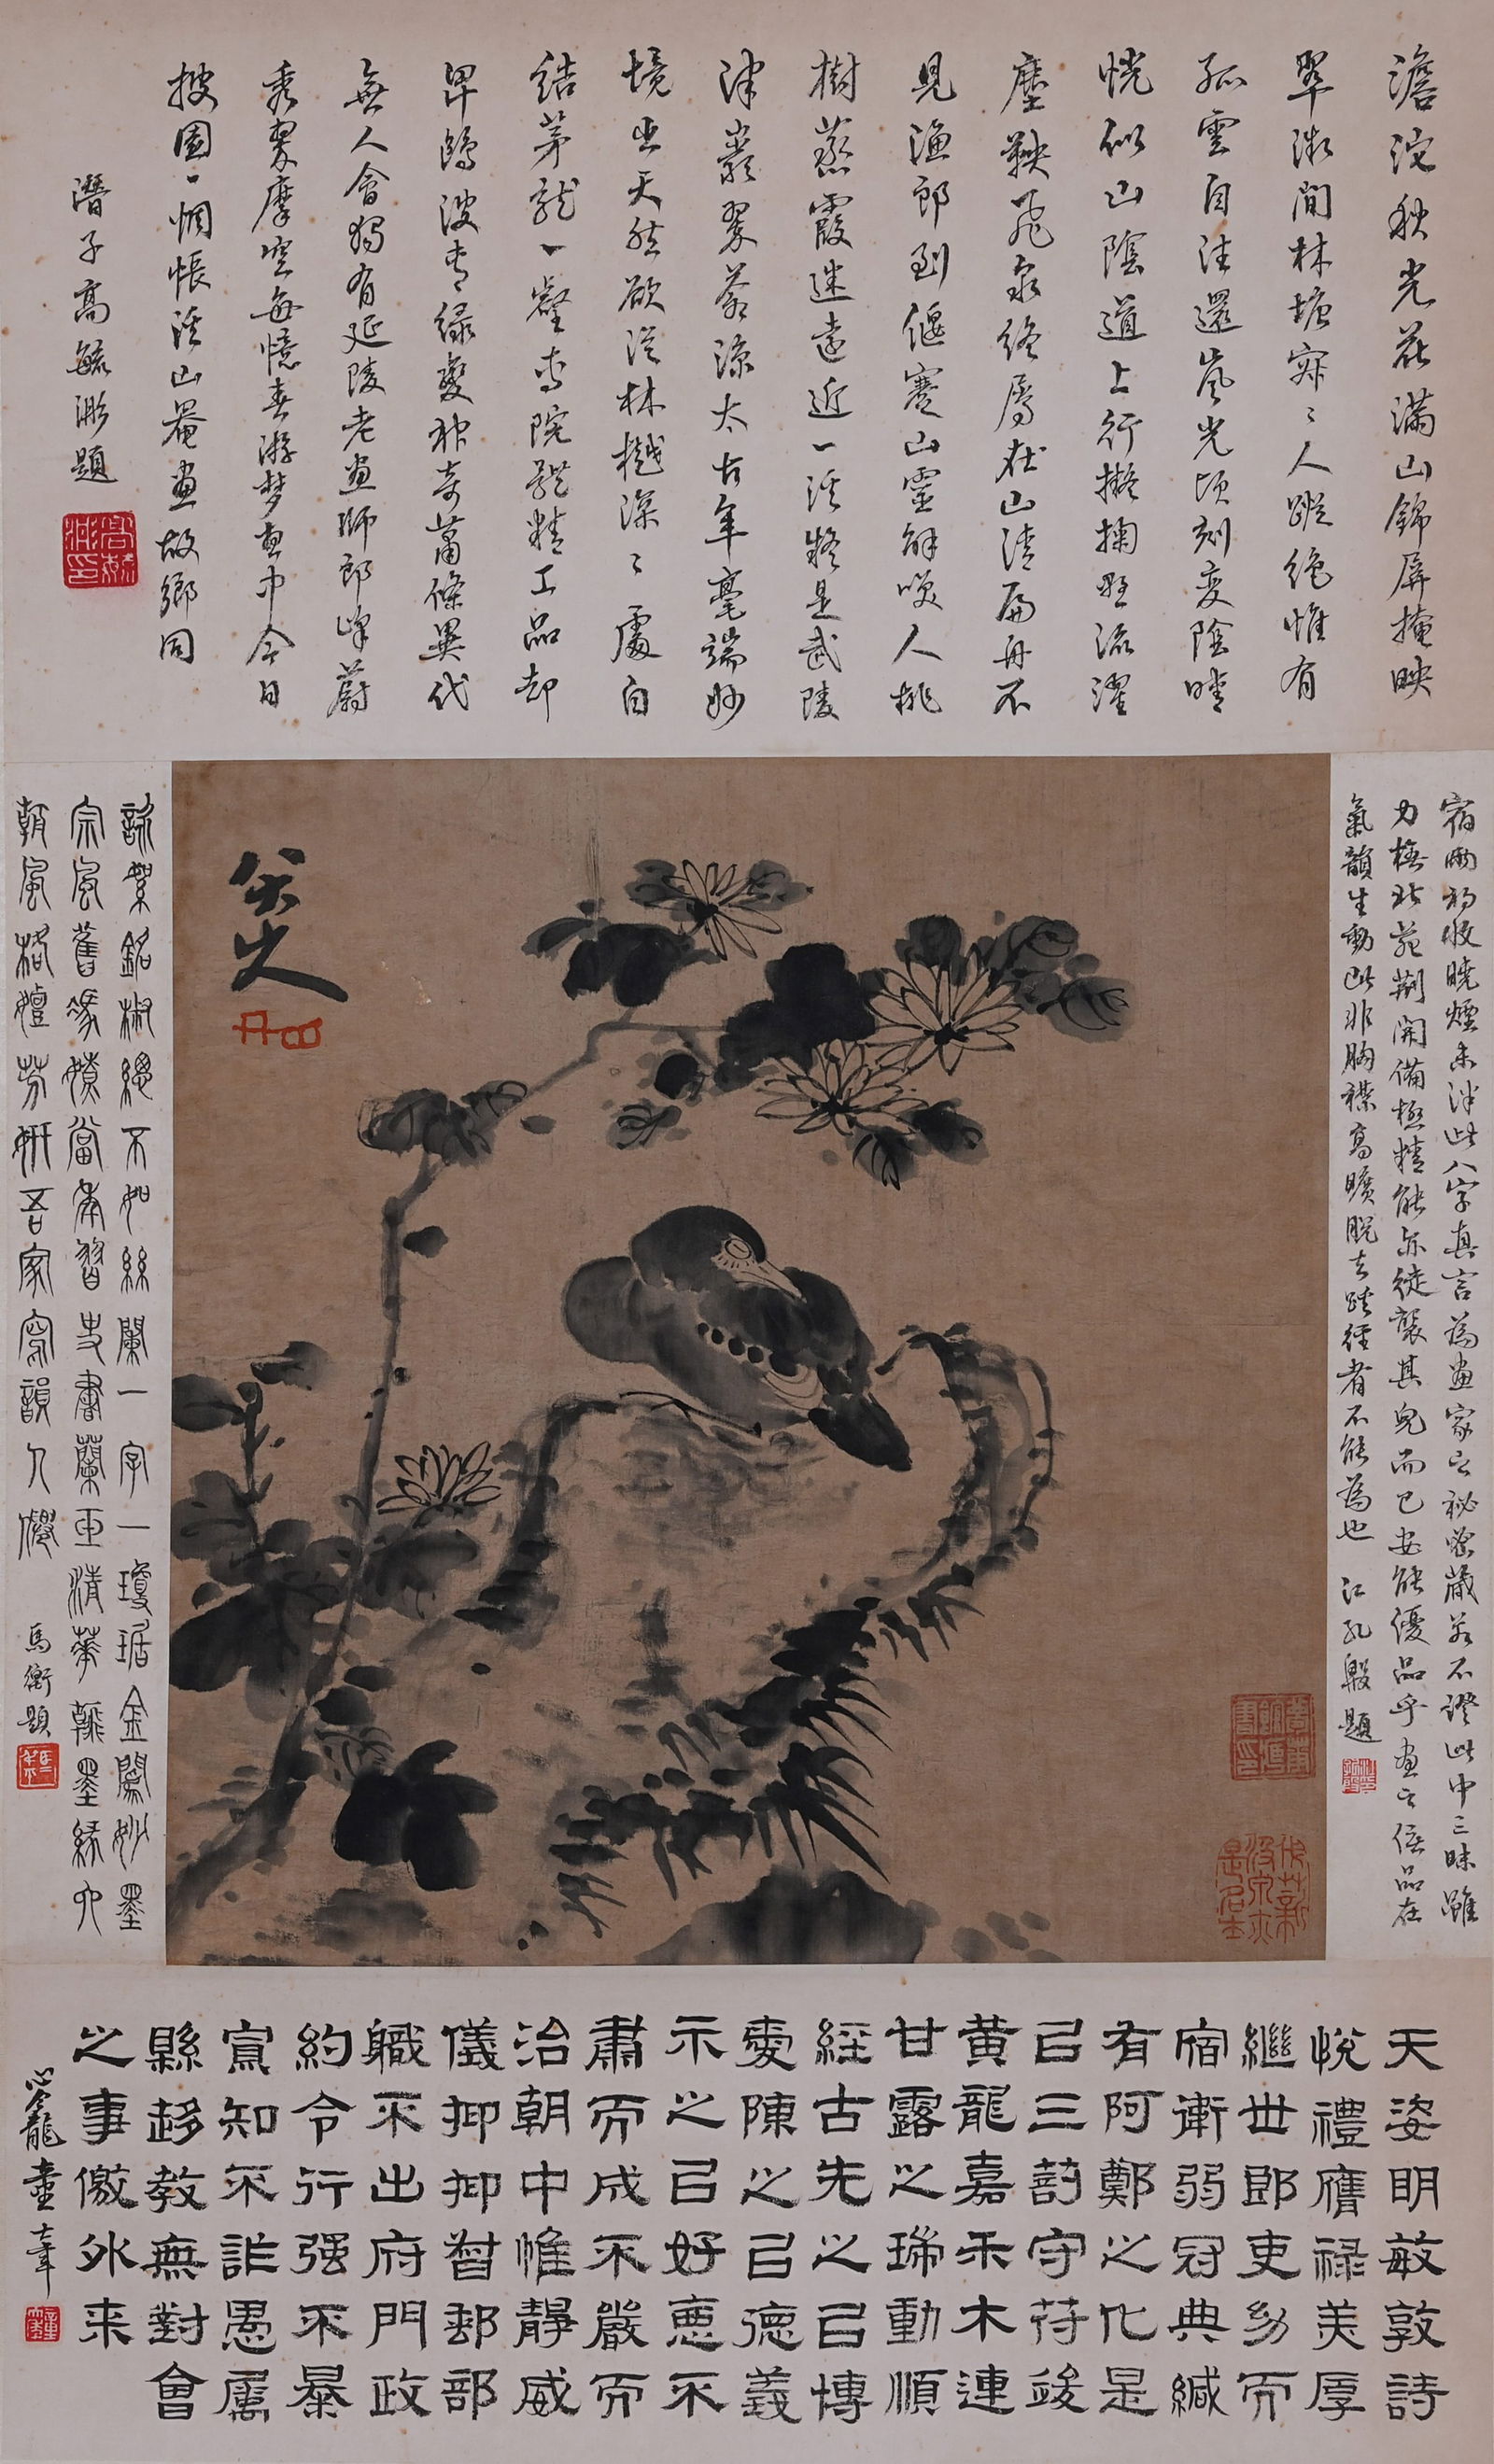 澹沱秋光花滿山錦屏掩映
翠微間林塘寂〻人蹤絕惟有
孤雲自往還嵐光頃刻變陰晴
恍似山陰道上行擬掬野流濯
塵鞅飛泉終屬在山清扁舟不
見漁郎到偃蹇山靈解笑人桃
樹蒸霞迷遠近一溪疑是武陵
津巖翠蒼涼太古年毫端妙
境出天然欲從林樾深〻處自
結茅龍一壑專院體精工品却
卑鷗波青綠變神奇蕭條異代
無人會獨有延陵老畫師郎峰蔚
秀翠摩空每憶春游夢寐中今日
披圖一惆悵溪山罨畫故鄉同
潛子高毓浵題
宿雨初收曉煙未泮此八字真言為畫家之祕密藏若不證此中三昧雖
力橅北苑荊關備極精能亦徒襲其皃而已安能優品乎畫之優品在
氣韻生動此非胸襟高曠脫去蹊徑者不能為也 江孔殷題
八大山人
詠絮銘椒總不如絲闌一字一瓊琚金閨妙墨
宗風舊當年習史書蘭玉清華翰墨緣六
朝風格嬗芬妍吾家寫韻人僊 馬衡題
天姿明敏敦詩
悅禮膺祿美厚
繼世郎吏幼而
宿衛弱冠典
有阿鄭之化是
㠯三剖守苻
黃龍嘉禾木連
甘露之瑞動順
經古先之㠯博
愛陳之㠯德義
示之㠯好惡不
肅而成不嚴而
治朝中惟靜威
儀抑抑督郵部
職不出府門政
約令行强不暴
寡知不詐愚屬
縣趍教無對會
之事徼外来
心龕童大年